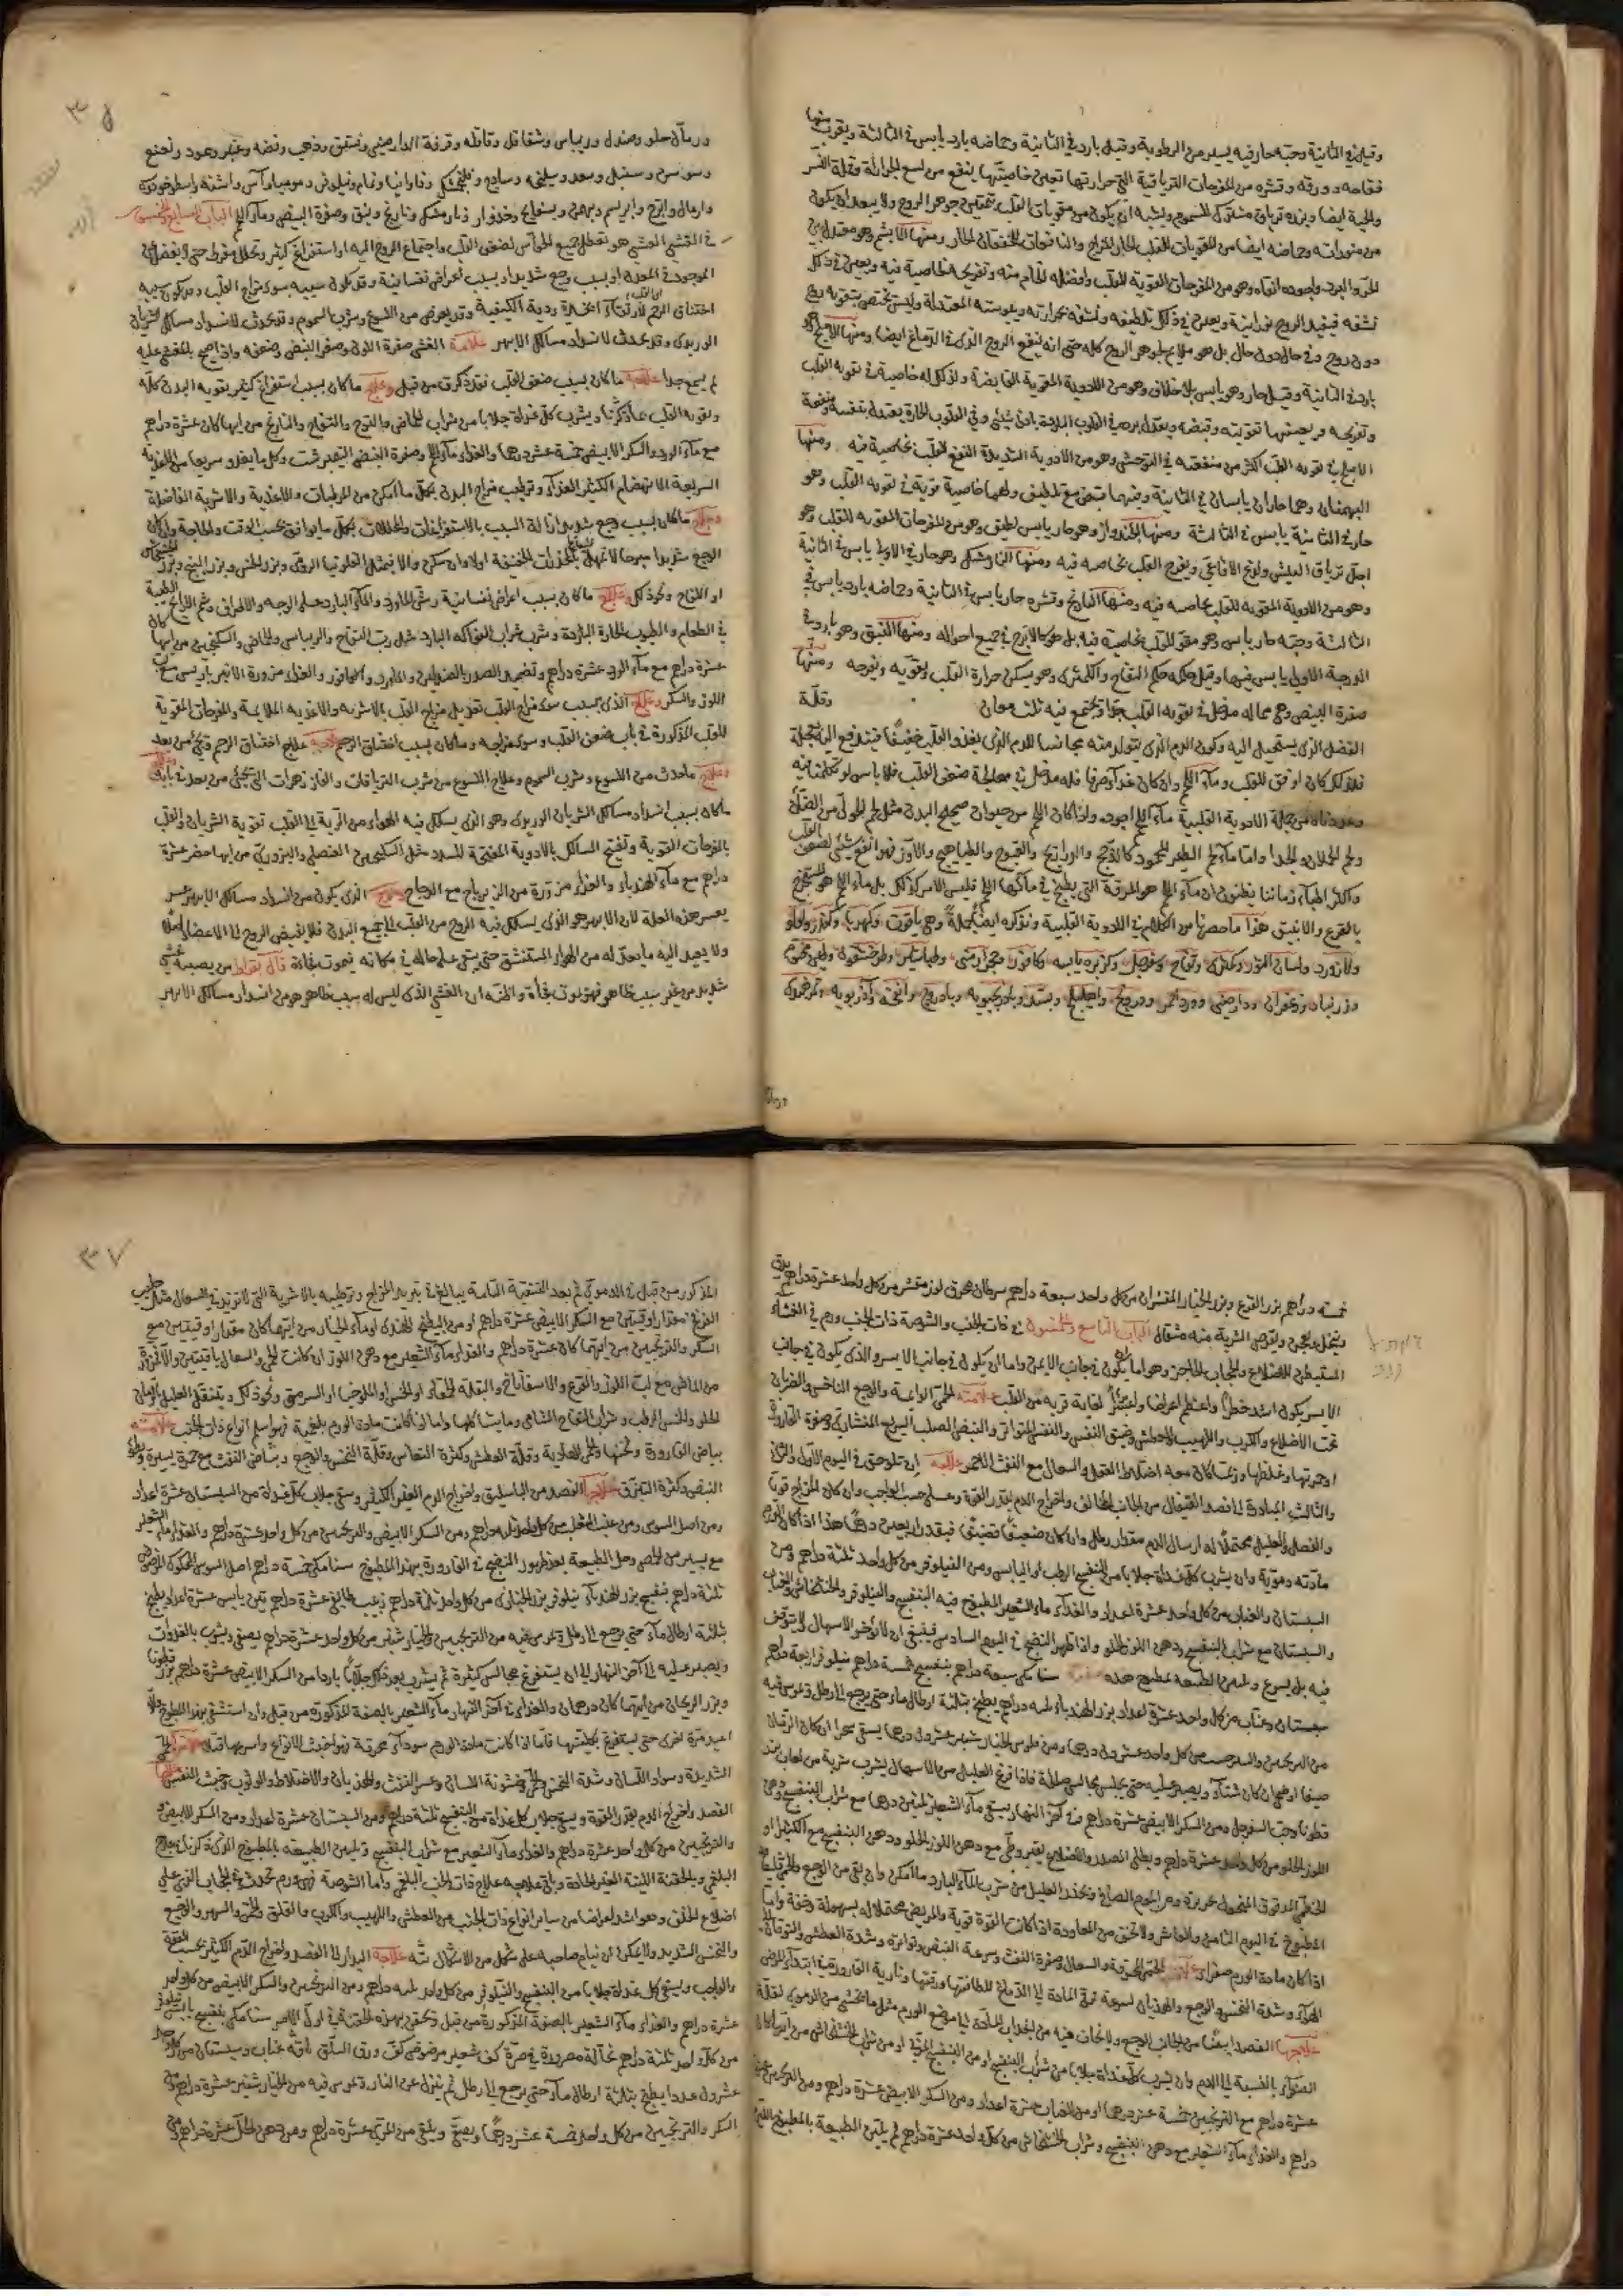 وقيل في الثانية وحبه حار فيه يسير من الرطوبة وقيل بارد في الثانية وحماضه بارد يابس في الثالثة ويقرب منها
فقاحه وورقه وقشره من المفرحات الترياقية التي حرارتها تعين خاصيتها ينفع من لسع الجرارة وقملة النسر
والحية ايضا وبزره ترياق مشارك للسموم ويشبه ان يكون من مقويات القلب بتمتين جوهر الروح ولا يبعد ان يكون
من منوراته وحماضه ايضا من المقويات للقلب الحار المزاج والنافعات للخفقان الحار ومنها الابريسم وهو معتدل بين
الحر والبرد واجوده انقاه وهو من المفرحات المقوية للقلب وافضله الخام منه وتفريحه لخاصية فيه ويعين في ذلك
نشفه فيفيد الروح نورانية ويعين في ذلك تلطيفه ونشفه بحرارته ويبوسته المعتدلة وليس يختص بتقوية روح
دون روح وفي حال دون حال بل هو ملايم لجوهر الروح كله حتى انه ينفع الروح الذي في الدماغ ايضا ومنها الاملج
بارد في الثانية وقيل حار وهو يابس بلا خلاف وهو من الادوية المقوية القابضة ولذلك له خاصية في تقوية القلب
وتفريحه ويعينها تقويته وقبضه
الاملج في تقوية القلب اكثر من منفعته في التوحش وهو من الادوية الشديدة النفع للقلب بخاصية فيه ومنها
البهمنان وهما حاران يابسان في الثانية وفيهما قبض مع تلطيف ولهما خاصية قوية في تقوية القلب وهو
حار في الثانية يابس في الثالثة ومنها الجدوار وهو حار يابس لطيف وهو من المفرحات المقوية للقلب وهو
اجل ترياق البيش ولدغ الافاعي ويفرح القلب بخاصية فيه ومنها النارمشك وهو حار في الاولى يابس في الثانية
وهو من الادوية المقوية للقلب بخاصية فيه ومنها النارنج وقشره حار يابس في الثانية وحماضه بارد يابس في
الثالثة وحبه حار يابس وهو مقو للقلب بخاصية فيه بل هو كالاترج في جميع احواله ومنها النبق وهو بارد في
الدرجة الاولى يابس فيها وقيل حكمه حكم التفاح والكمثرى وهو يسكن حرارة القلب ويقويه ويفرحه ومنها
صفرة البيض وهي مما له مدخل في تقوية القلب جدا ويجتمع فيه ثلث معان وقلة
الفضل الذي يستحيل اليه وكون الدم الذي يتولد منه مجانسا للدم الذي يغذو القلب خفيفا فيندفع اليه بعجلة
فلذلك كان اوفق للقلب وماء اللحم وان كان غذاء صرفا فله مدخل في معالجة ضعف القلب فلا باس لو تكلمنا فيه
وعددناه من جملة الادوية القلبية ماء اللحم اجوده ماذا كان اللحم من حيوان صحيح البدن مثل لحم الحولي من الضأن
ولحم الحملان والجدا واما ماء لحم الطير المحمود كالدجج والدراريج والقبج والطياهيج والاوز فهو انفع شيئ لضعف القلب
واكثر اطباء زماننا يظنون ان ماء اللحم هو المرقة التي يطبخ في مائها اللحم فليس الامر كذلك بل ماء اللحم هو المستخرج
بالقرع والانبيق هذا ما حصرنا من الكلام في الادوية القلبية ونذكره ايضا جملة وهي ياقوت وكهربا ولؤلؤ
ولازورد ولسان الثور وتفاح وكزبره يابسه وكافور وحجر ارمني وطباشير وطين مختوم
وزرنباد وزعفران ودارصيني وورد احمر ودرونج واهليلج وبسد وبادرنجبويه وباذروج وانفحه
ورمان حلو وصندل وريباس وشقاقل وقاقله وقرفة الدارصيني وفستق وذهب وفضه وعنبر وعود ونعنع
وسوسن وسنبل وسعد وسليخه وساذج وفلنجمشك وفاوانيا ونمام ونيلوفر وموميا وآس واشنه واسطوخودوس
واملج واترج وابريسم وبهمن وبسفايج وجدوار ونارمشك ونارنج ونبق وصفرة البيض وماء اللحم الباب السابع والخمسون
في الغشي الغشي هو تعطل جميع الحواس لضعف القلب واجتماع الروح اليه او استفراغ كثير وتحلل مفرط
الموجود في المعدة او بسبب وجع شديد او بسبب اعراض نفسانية وقد يكون سببه سوء مزاج القلب وقد يكون سببه
اختناق الرحم لارتقاء ابخرة ردية الكيفية وقد يعرض من اللسوع وشرب السموم وقد يحدث لانسداد مسالك الشريان
الوريدي وقد يحدث لانسداد مسالك الابهر علامة الغشي صفرة اللون وصغر النبض وضعفه واذا صيح بالمغشي عليه
لم يسمع جدا علاج ما كان بسبب ضعف القلب فقد ذكر من قبل وعلاج ما كان بسبب استفراغ كثير تقويه البدن كله
وتقوية القلب بما ذكرنا ويشرب كل غداة جلابا من شراب الحماض والاترج والتفاح والنارنج من ايها كان عشرة دراهم
مع ماء الورد والسكر الابيض خمسة عشر درهما والغذاء ماء اللحم وصفرة البيض النيمبرشت وكل ما يغذو سريعا من الاغذية
السريعة الانهضام الكثير الغذاء وترطيب مزاج البدن بكل ما امكن من المرطبات والاغذية والاشربة الفاضلة
وعلاج ما كان بسبب وجع شديد ازالة السبب بالاستفراغات والمحللات بكل ما يوافق بحسب الوقت والحاجة وان كان
الوجع شديدا مبرحا لا يمهل بالمخدرات الخفيفة اولا وان سكن والا فبمثل الفلونيا الرومي وبزر الخس وبزر البنج وبزر الخشخاش
او اللفاح ونحو ذلك وعلاج ما كان بسبب اعراض نفسانية رش الماورد والماء البارد على الوجه والاطراف وشم الروايح الطيبة
في الطعام والطيوب الحارة اللذيذة وشرب شراب الفواكه البارده مثل رب التفاح والريباس والحماض والسكنجبين من ايها كان
عشرة دراهم مع ماء الورد عشرة دراهم وتضميد الصدر بالصندلين والماورد والكافور والغذاء مزورة الانبرباريس مع دهن
اللوز والسكر وعلاج الذي بسبب سوء مزاج القلب تعديل مزاج القلب بالاشربه والاغذيه الملايمة والمفرحات المقوية
للقلب المذكورة في باب ضعف القلب وسوء مزاجه وما كان بسبب اختناق الرحم فعلاجه علاج اختناق الرحم فيجيء من بعد
وعلاج ما حدث من اللسوع وشرب السموم وعلاج اللسوع من شرب الترياقات والفادزهرات التي تجيئ من بعد في بابه وعلاج
ما كان بسبب انسداد مسالك الشريان الوريدي وهو الذي يسلك فيه الهواء من الرية الى القلب تقوية الشريان والقلب
بالمفرحات المقوية وتفتيح المسالك بالادوية المفتحة للسدد مثل السكنجبين العنصلي والبزوري من ايها حضر عشرة
دراهم مع ماء الهندباء والغذاء مزورة من الزيرباج مع الدجاج وعلاج الذي يكون من انسداد مسالك الابهر عسر
يعسر هذه العلة لان الابهر هو الذي يسلك فيه الروح من القلب الى جميع البدن فلا يفيض الروح الى الاعضاء اصلا
ولا يصل اليه ما يعدله من الهواء المستنشق حتى يبقى على حاله في مكانه فيموت فجاءة قال بقراط من يصيبه غشي
شديد من غير سبب ظاهر فهو يموت فجأة والحق ان الغشي الذي ليس له سبب ظاهر هو من انسداد مسالك الابهر
خمسة دراهم بزر القرع وبزر الخيار المقشران من كل واحد سبعة دراهم سرطان محرق لوز مقشر من كل واحد عشرة دراهم يدق
وينخل ويعجن ويقرص الشربة منه مثقال الباب التاسع والخمسون في ذات الجنب والشوصة ذات الجنب ورم في الغشاء
المستبطن للاضلاع والحجاب الحاجز وهو اما ان يكون في جانب الايمن واما ان يكون في جانب الايسر والذي يكون في جانب
الايسر يكون اشد خطرا واعظم اعراضا لغاية قربه من القلب علامته الحمى الدائمة والوجع الناخس والضربان
تحت الاضلاع والكرب واللهيب والعطش وضيق النفس والنفس المتواتر والنبض الصلب السريع المنشاري وصفرة القارورة
او حمرتها وغلظها وربما كان معه اختلاط العقل والسعال مع النفث الاحمر علاجه ان تلوحق في اليوم الاول والثاني
والثالث المبادرة الى فصد القيفال من الجانب المخالف واخراج الدم بقدر القوة وعلى حسب الواجب وان كان المزاج قويا
والفصل والعليل محتملا له ارسال الدم مقدار رطل وان كان ضعيفا فبقدر اربعين درهما هذا اذا كان الورم
مادته دموية وان يشرب كل غداة جلابا من البنفسج الرطب او اليابس ومن النيلوفر من كل واحد ثلثة دراهم ومن
السبستان والعناب من كل واحد عشرة اعداد والغذاء ماء الشعير المطبوخ فيه البنفسج والنيلوفر والخشخاش والعناب
والسبستان مع شراب البنفسج ودهن اللوز الحلو واذا ظهر النضج في اليوم السادس فينبغي ان لا يؤخر الاسهال ولا يتوقف
فيه بل يسرع وتليين الطبيعة بمطبوخ هذه صفته سنا مكي سبعة دراهم بنفسج خمسة دراهم نيلوفر اربعة دراهم
سبستان وعناب من كل واحد عشرة اعداد بزر الهندباء ثلثه دراهم يطبخ بثلثة ارطال ماء حتى يرجع الى رطل ويمرس فيه
من الترنجبين والشيرخشت من كل واحد عشرون درهما ومن فلوس الخيار شنبر عشرون درهما يسقى سحرا ان كان الزمان
صيفا او ضحى ان كان شتاء ويصبر عليه حتى يجلس مجالس صالحة فاذا فرغ العليل من الاسهال يشرب شربة من لعاب بزر
قطونا وحب السفرجل ومن السكر الابيض عشرة دراهم وفي آخر النهار يسقى ماء الشعير ثلثين درهما مع شراب البنفسج ودهن
اللوز الحلو من كل واحد عشرة دراهم ويطلى الصدر والاضلاع بقيروطي مع دهن اللوز الحلو ودهن البنفسج مع الكثيرا او
الخطمي المدقوق المنخول بحريرة ويحذر العليل من شرب الماء البارد ما امكن وان بقي من الوجع والحمى
المطبوخ في اليوم الثامن والعاشر ولا تخف من المعاودة اذا كانت القوة قوية والمريض محتملا له بسهولة وخفة واما
اذا كان مادة الورم صفراء علامته الحمى المحرقة والسعال وصفرة النفث وسرعة النبض وتواتره وشدة العطش والتوقان الى
الهواء وشدة النخس والوجع والهذيان لسرعة ترقي المادة الى الدماغ للطافتها ورقتها ونارية القارورة في ابتداء المرض
علاجها الفصد ايضا من الجانب الوجع ولا تخاف فيه من انجذاب المادة الى موضع الورم مثل ما تخشى من الدموي لقلة
الصفراء بالنسبة الى الدم وان يشرب كل غداة جلابا من شراب البنفسج او من البنفسج المربى او من شراب الخشخاش من ايها كان
عشرة دراهم مع الترنجبين خمسة عشر درهما او من العناب عشرة اعداد ومن السكر الابيض عشرة دراهم ومن الترنجبين
دراهم والغذاء ماء الشعير مع دهن البنفسج وشراب الخشخاش من كل واحد عشرة دراهم ثم يلين الطبيعة بالمطبوخ اللين
المذكور من قبل في الدموي ثم بعد التنقية التامة يبالغ في تبريد المزاج وترطيبه بالاشربة التي لا تزيد في السعال مثل حليب
القرع مقدار اوقيتين مع السكر الابيض عشرة دراهم او من البطيخ الهندي او ماء الخيار من ايتهما كان مقدار اوقيتين مع
السكر والترنجبين من ايتهما كان عشرة دراهم والغذاء ماء الشعير مع دهن اللوز ان كانت الحمى والسعال باقيتين والا فمزورة
من الماش مع لب اللوز والقرع والاسفاناخ والبقلة الحمقاء او الخس او الملوخيا او السرمق ونحو ذلك ويتنقل العليل بالرمان
الحلو والخس الرطب وشراب التفاح الشامي وما يشاكلها واما اذا كانت مادة الورم بلغمية فهو اسلم انواع ذات الجنب علامته
بياض القارورة وثخنها والحمى الهادية وقلة العطش وكثرة النعاس وقلة النخس والوجع وبياض النفث مع حمرة يسيرة وبطؤ
النبض وكثرة التبزق علاجها الفصد من الباسليق واخراج الدم بقدر الكفى وسقي جلاب كل غداة من السبستان عشرة اعداد
ومن اصل السوس ومن عنب الثعلب من كل واحد ثلثة دراهم ومن السكر الابيض والترنجبين من كل واحد عشرة دراهم والغذاء ماء الشعير
مع يسير من الحمص وحل الطبيعة بعد ظهور النضج في القارورة بهذا المطبوخ سنا مكي خمسة دراهم اصل السوس المحكوك المرضوض
ثلثة دراهم بنفسج بزر الهندباء نيلوفر بزر الخبازى من كل واحد ثلثة دراهم زبيب طايفي عشرة دراهم تين يابس عشرة اعداد يطبخ
بثلاثة ارطال ماء حتى يرجع الى رطل ويمرس فيه من الترنجبين والخيار شنبر من كل واحد عشرة دراهم يصفى ويشرب بالغدوات
ويصبر عليه الى آخر النهار الى ان يستفرغ مجالس كثيرة ثم يشرب بعد ذلك جلابا باردا من السكر الابيض عشرة دراهم بزر قطونا
وبزر الريحان من ايتهما كان درهمان والغذاء في آخر النهار ماء الشعير بالصفة المذكورة من قبل وان استشفي بهذا المطبوخ والا
اعيد مرة اخرى حتى يستفرغ بكليتها فاما اذا كانت مادة الورم سوداء محرقة فهو اخبث الانواع واسرعها قتلا علامته الحمى
الشديدة وسواد اللسان وشدة النخس وخشونة اللسان وعسر النفث والهذيان والاختلاط والوثوب وخبث النفس علاجها
الفصد واخراج الدم بقدر القوة ويسقى جلاب كل غداة من البنفسج ثلثة دراهم ومن السبستان عشرة اعداد ومن السكر الابيض
والترنجبين من كل واحد عشرة دراهم والغذاء ماء الشعير مع شراب البنفسج وتليين الطبيعه بالمطبوخ الذي ذكر في علاج
البلغمي وبالحقنة اللينة الغير الحادة وباقي علاجه علاج ذات الجنب البلغمي واما الشوصة فهي ورم يحدث في الحجاب الذي على
اضلاع الخلف وهو اشد اعراضا من ساير انواع ذات الجنب من العطش واللهيب والكرب والقلق والحمى والسهر والوجع
والنخس الشديد ولا يمكن ان ينام صاحبه على شكل من الاشكال البتة علاجه البدار الى الفصد واخراج الدم الكثير بحسب القوة
والواجب ويسقى كل غداة جلابا من البنفسج والنيلوفر من كل واحد ثلثه دراهم ومن الترنجبين والسكر الابيض من كل واحد
عشرة دراهم والغذاء ماء الشعير بالصفة المذكورة من قبل وتحقن بهذه الحقنة في اول الامر سنا مكي بنفسج يابس نيلوفر
من كل واحد ثلثة دراهم نخالة مصرورة في صرة كف شعير مرضوض كف ورق السلق باقة عناب وسبستان من كل واحد
عشرون عددا يطبخ بثلثة ارطال ماء حتى يرجع الى رطل ثم ينزل عن النار ويمرس فيه من الخيار شنبر عشرة دراهم ومن
السكر والترنجبين من كل واحد خمسة عشر درهما ويصفى ويلقى من المري عشرة دراهم ومن دهن الخل عشرة دراهم